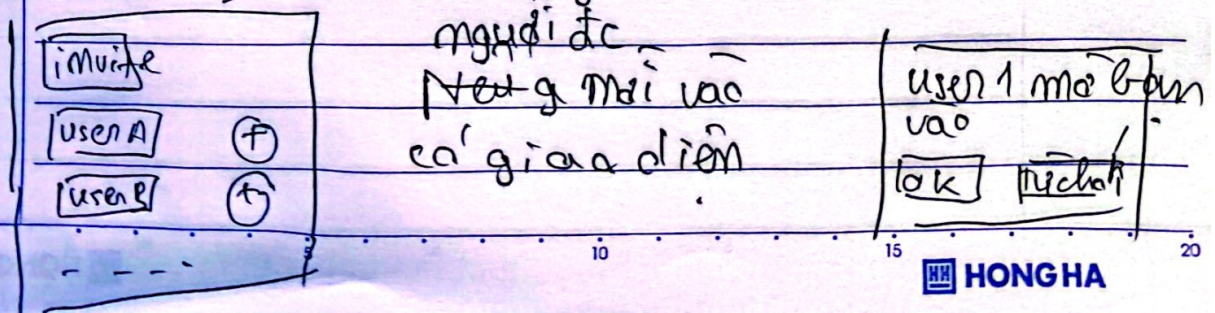 invite
user A +
user B +
người đc
New g mời vào
có giao diện
user 1 mờ bạn
vào
OK từ chối
5 10 15 20
HH HONG HA